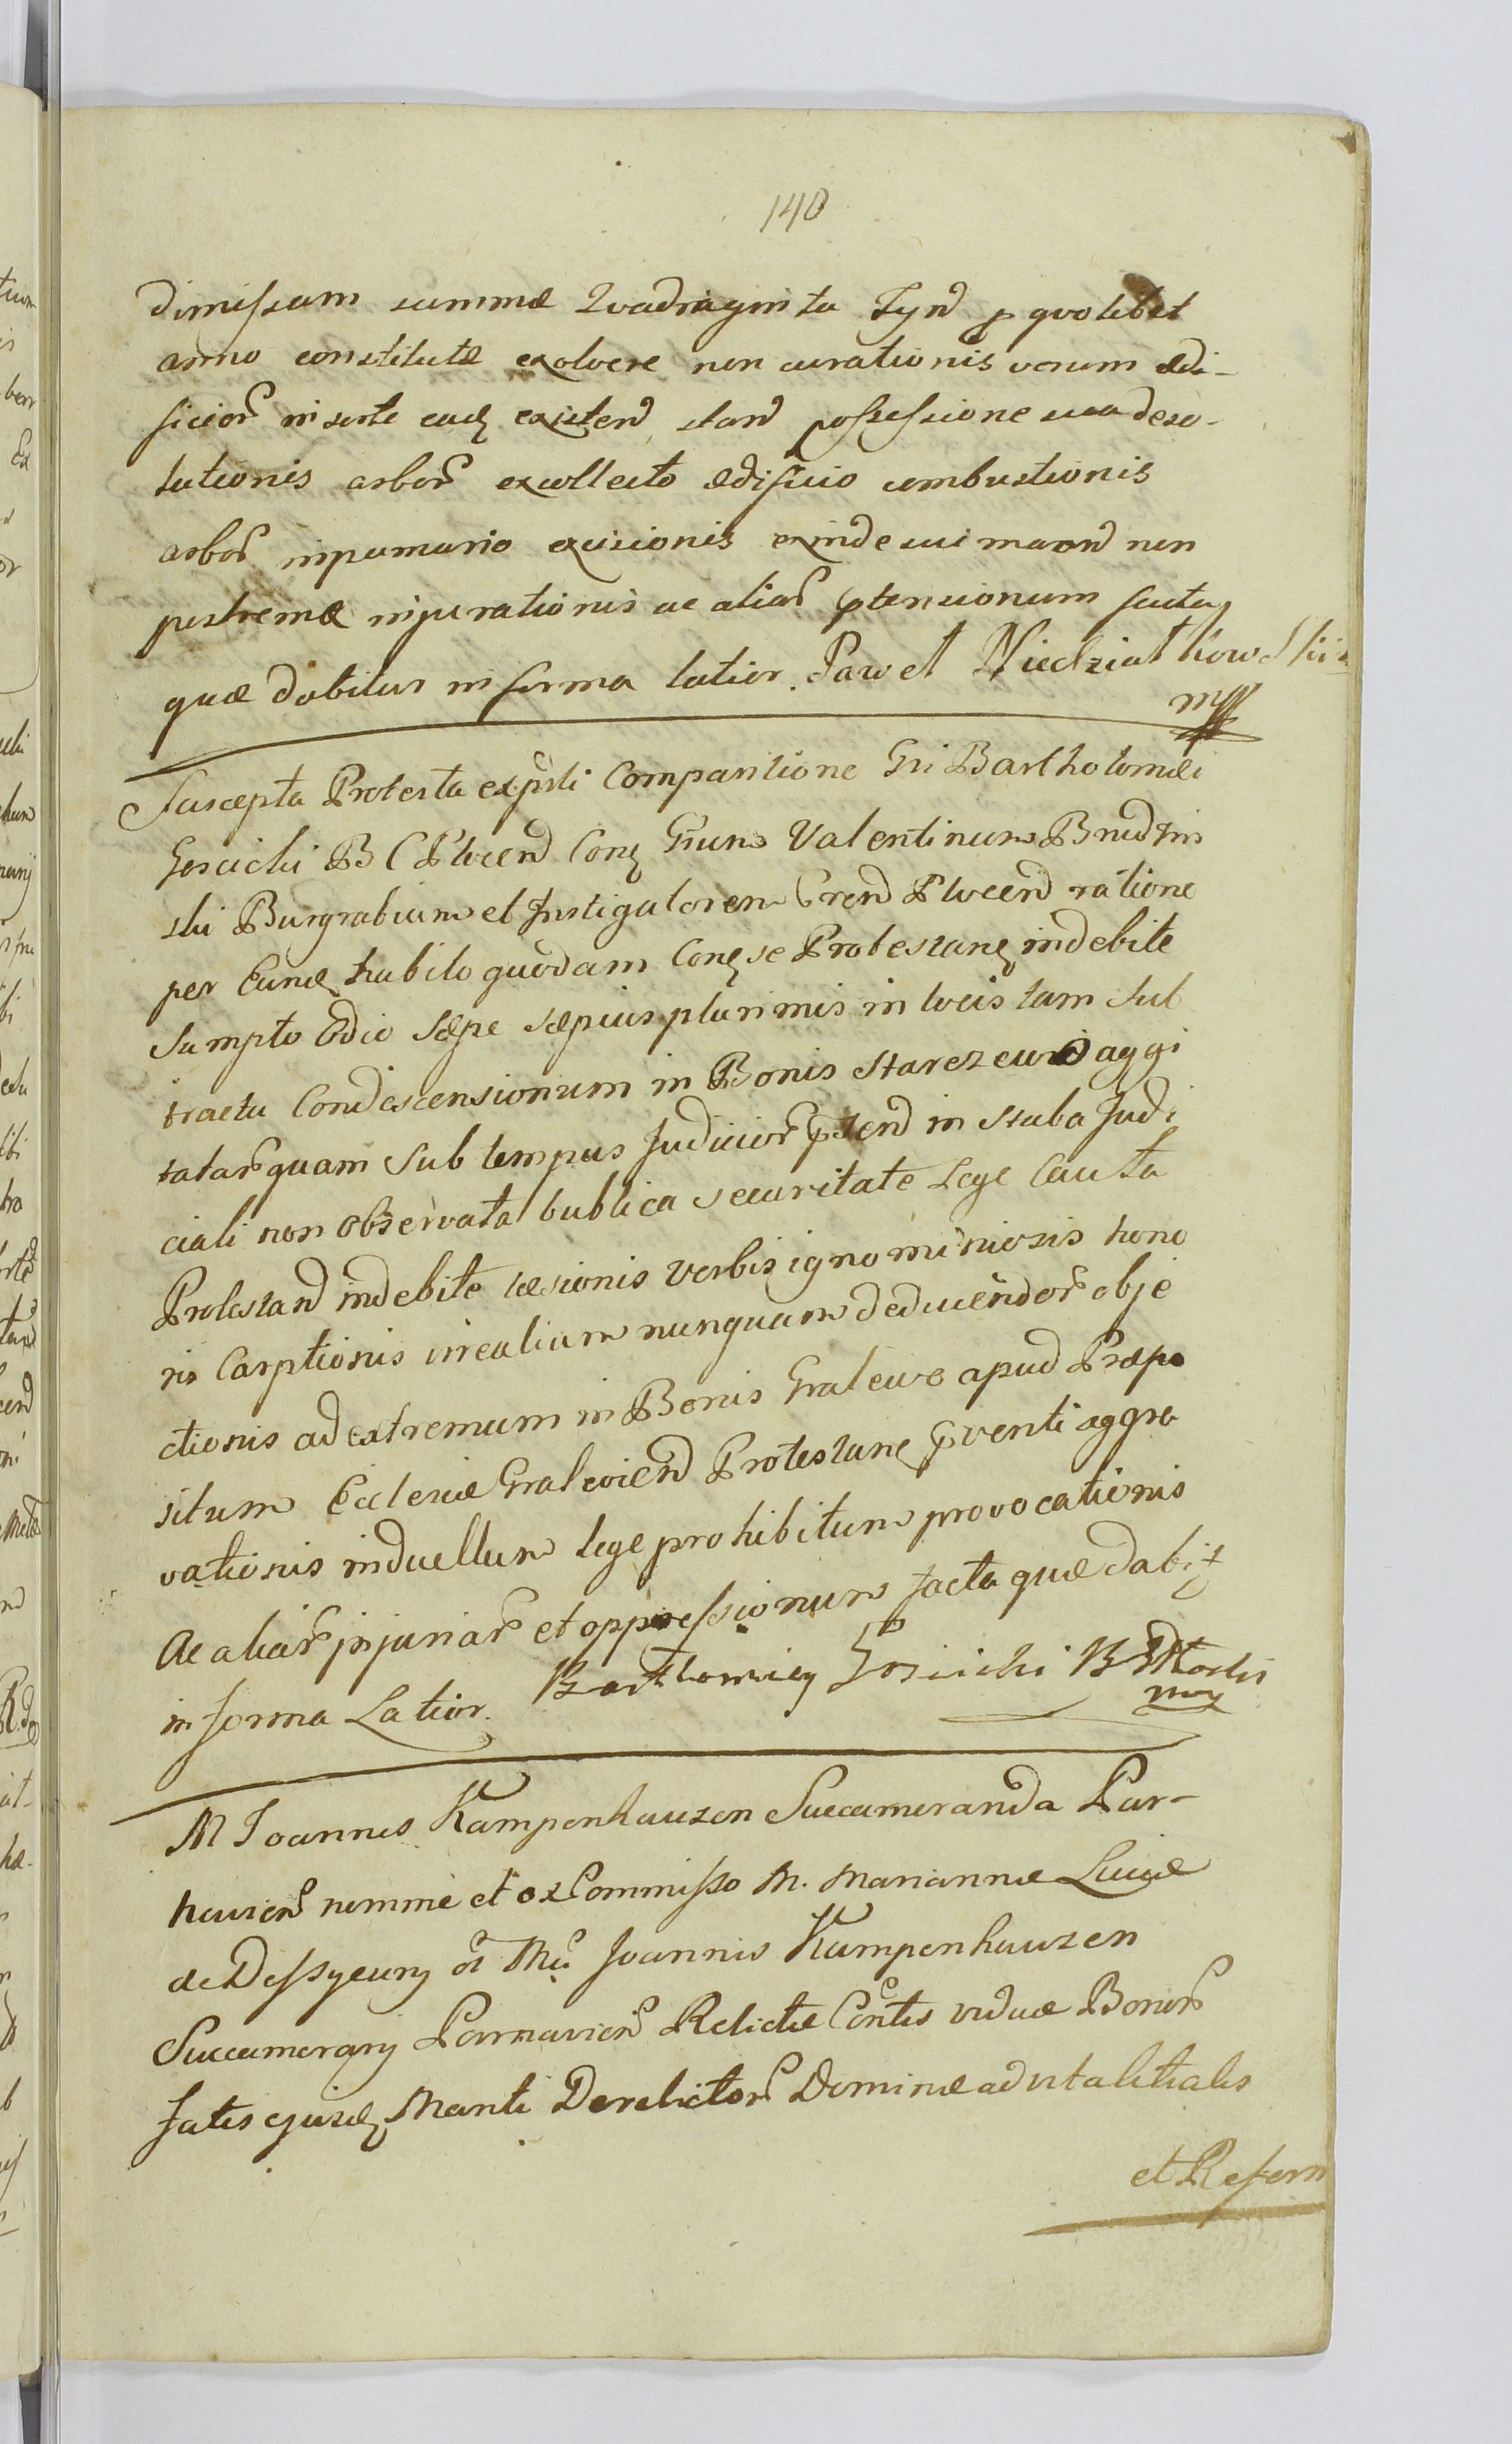 140
dimissam summæ Quadraginta Tynd p quolibet
anno constitutæ exolvere non curationis verum ædi-
ficior in sorte eadq existend stand possessione sua deso-
lationis arbor excollecto ædificio combustionis
arbor in pomario excisionis exinde sui maond non
postremæ injurationis ac aliar ptensionum facta
quæ dabitur in forma latior. Paweł Niedziałkowski
mp
Suscepta Protesta expsti Comparitione Gsi Bartholomæi
Gosicki B C Plocend Conq Gsum Valentinum Brudzin
ski Burgrabium et Instigatorem Crend Plocend ratione
per Eundq habito quodam Conq se Protestanq indebite
Sumpto Odio Sæpe Sæpius plurimis in locis tam Sub
tractu Condescensionum in Bonis Starezewo aggi
tatar quam Sub tempus Judicior ptend in Stuba Judi
ciali non Observata bublica Securitate Lege Cauta
Protestand indebite læsionis Verbis ignominiosis hono
ris Carptionis irrealium nunquam deducendor obje
ctionis ad extremum in Bonis Gralewo apud Præpo
situm Ecclesiæ Gralewiend Protestanq pventi aggra
vationis in duellum lege prohibitum provocationis
Ac aliar injuriar et oppressionum facta quæ dabit
in forma Latior. Bartłomiey Gosicki B
mp
M Joannes Kampenhauzen Succamerarida Par-
naviens nomine et ex Commisso M. Mariannæ Luciæ
de Joannis Kampenhauzen
Succamerarij Parnaviens Relictæ Contis viduæ Bonor
fatis ejusdq Mariti Derelictor Dominæ advitalitialis
et Reform